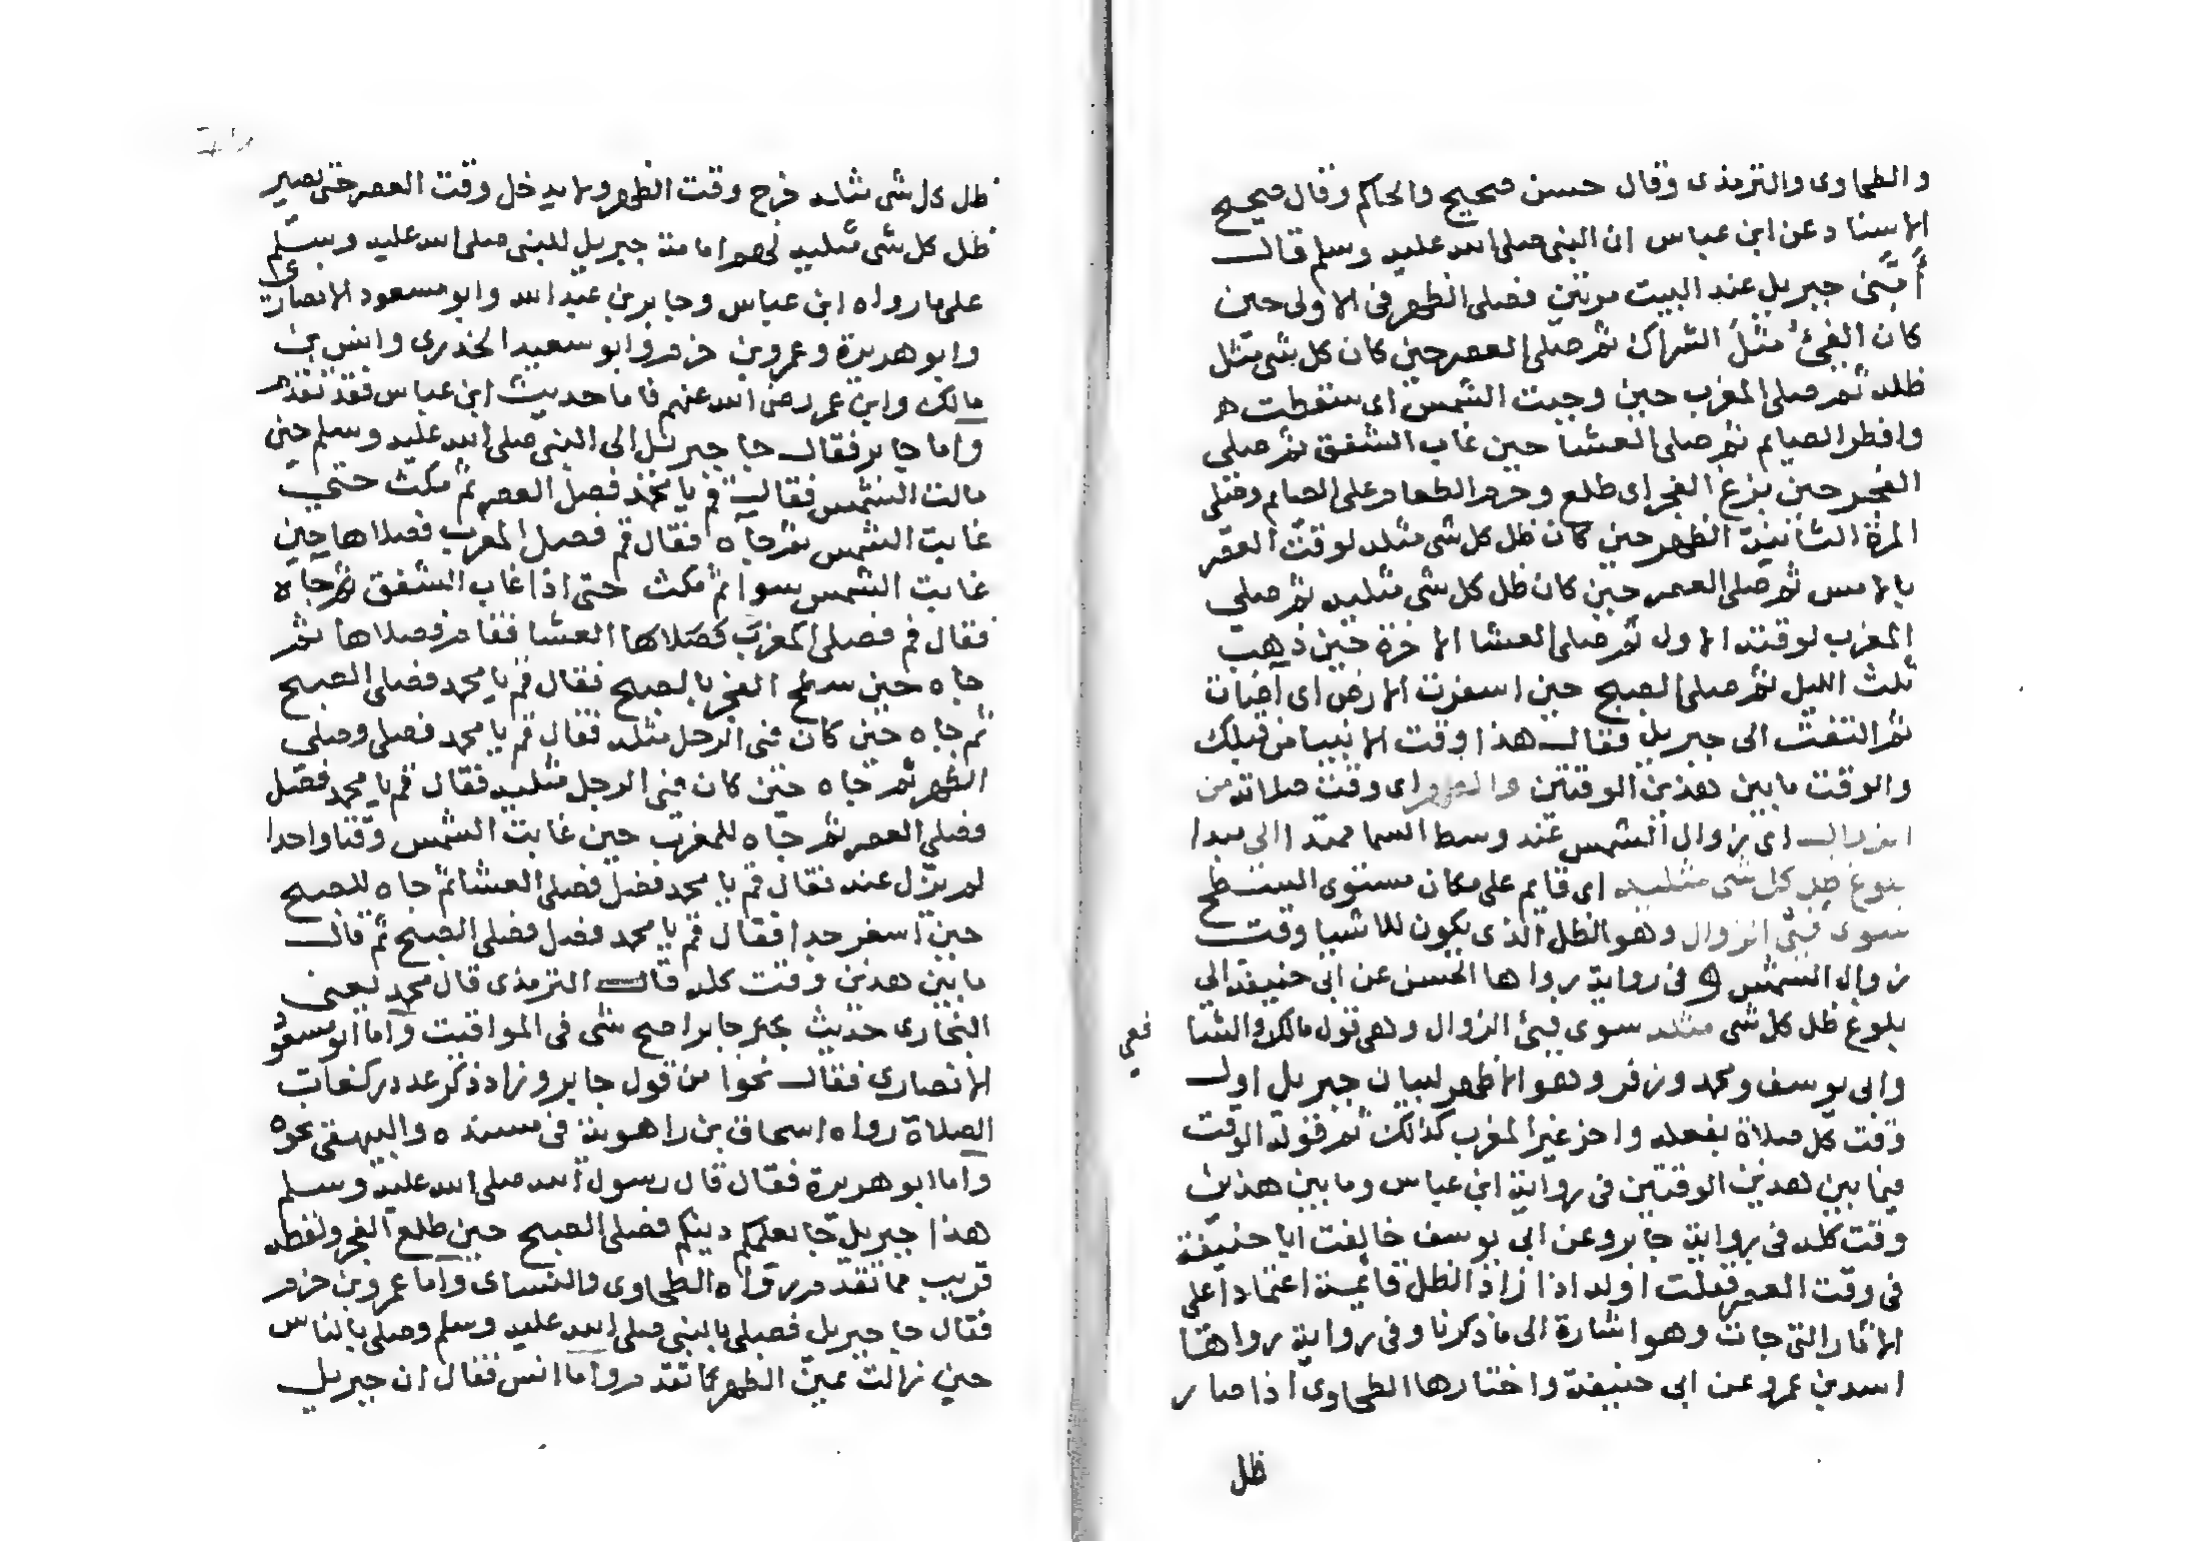 والطحاوى والترمذى وقال حسن صحيح والحاكم وقال صحيح
الاسناد عن ابن عباس ان النبى صلى الله عليه وسلم قال
أمّنى جبريل عند البيت مرتين فصلى الظهر فى الاولى حين
كان الفئ مثل الشراك ثم صلى العصر حين كان كل شى مثل
ظله ثم صلى المغرب حين وجبت الشمس اى سقطت
وافطر الصايم ثم صلى العشا حين غاب الشفق ثم صلى
الفجر حين بزغ الفجر اى طلع وحرم الطعام على الصايم وصلى
المرة الثانية الظهر حين كان ظل كل شى مثله لوقت العصر
بالامس ثم صلى العصر حين كان ظل كل شى مثليه ثم صلى
المغرب لوقته الاول ثم صلى العشا الاخرة حين ذهب
ثلث الليل ثم صلى الصبح حين اسفرت الارض اى اضات
ثم التفت الى جبريل فقال هذا وقت الانبيا من قبلك
والوقت ما بين هذين الوقتين والظهر اى وقت صلاته من
الزوال اى زوال الشمس عند وسط السما ممتدا الى مبدا
بلوغ ظل كل شى مثليه اى قايم على مكان مستوى السطح
سوى فئ الزوال وهو الظل الذى يكون للاشيا وقت
زوال الشمس فى رواية رواها الحسن عن ابى حنيفة الى
بلوغ ظل كل شى مثله سوى فئ الزوال وهى قول مالك والشا
فعى
وابى يوسف ومحمد وزفر وهو الاظهر لبيان جبريل اول
وقت كل صلاة بفعله واخر غير المغرب كذلك ثم قوله الوقت
فيما بين هذين الوقتين فى رواية ابن عباس وما بين هذين
وقت كله فى رواية جابر وعن ابى يوسف خالفت ابا حنيفة
فى وقت العصر فقلت اوله اذا زاد الظل قايمة اعتمادا على
الاثار التى جات وهو اشارة الى ما ذكرنا وفى رواية رواها
اسد بن عمرو عن ابى حنيفة واختارها الطحاوى اذا صار
ظل
ظل كل شى مثله خرج وقت الظهر ولا يدخل وقت العصر حتى يصير
ظل كل شى مثليه فهو امامة جبريل للنبى صلى الله عليه وسلم
على ما رواه ابن عباس وجابر بن عبد الله وابو مسعود الانصارى
وابو هريرة وعمرو بن حزم وابو سعيد الخدرى وانس بن
مالك وابن عمر رضى الله عنهم فاما حديث ابن عباس فقد تقدم
واما جابر فقال جا جبريل الى النبى صلى الله عليه وسلم حين
مالت الشمس فقال قم يا محمد فصل العصر ثم مكث حتى
غابت الشمس ثم جاه فقال قم فصل المغرب فصلاها حين
غابت الشمس سوا ثم مكث حتى اذا غاب الشفق ثم جاه
فقال قم فصلى المغرب فصلاها العشا فقام فصلاها ثم
جاه حين سطح الفجر بالصبح فقال قم يا محمد فصلى الصبح
ثم جاه حين كان فى الرجل مثله فقال قم يا محمد فصلى وصلى
الظهر ثم جاه حين كان فى الرجل مثليه فقال قم يا محمد فصل
فصلى العصر ثم جاه للمغرب حين غابت الشمس وقتا واحدا
لم يزل عنه فقال قم يا محمد فصل فصلى العشا ثم جاه للصبح
حين اسفر جدا فقال قم يا محمد فصل فصلى الصبح ثم قال
ما بين هذين وقت كله قال الترمذى قال محمد يعنى
البخارى حديث جابر اصح شى فى المواقيت واما ابو مسعود
الانصارى فقال نحوا من قول جابر وزاد ذكر عدد ركعات
الصلاة رواه اسحاق بن راهوية فى مسنده والبيهقى نحوه
واما ابو هريرة فقال قال رسول الله صلى الله عليه وسلم
هذا جبريل جا يعلمكم دينكم فصلى الصبح حين طلع الفجر ولفظه
قريب مما تقدم رواه الطحاوى والنساى واما عمرو بن حزم
فقال جا جبريل فصلى بالنبى صلى الله عليه وسلم وصلى بالناس
حين زالت الظهر كما تقدم واما انس فقال ان جبريل